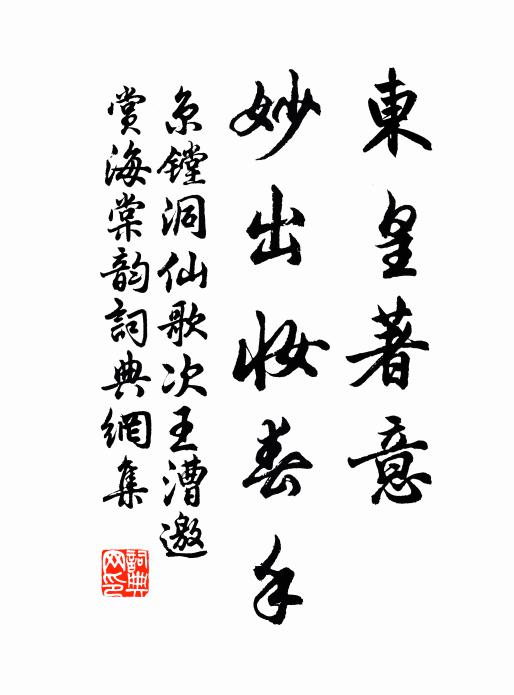 東皇著意
妙出妝春手
京鏜洞仙歌次王漕邀
賞海棠韵詞典網集
詞典網印